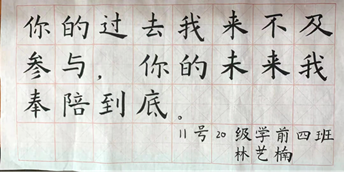 你的过去我来不及
参与，你的未来我
奉陪到底。
11号20级学前四班
林艺楠